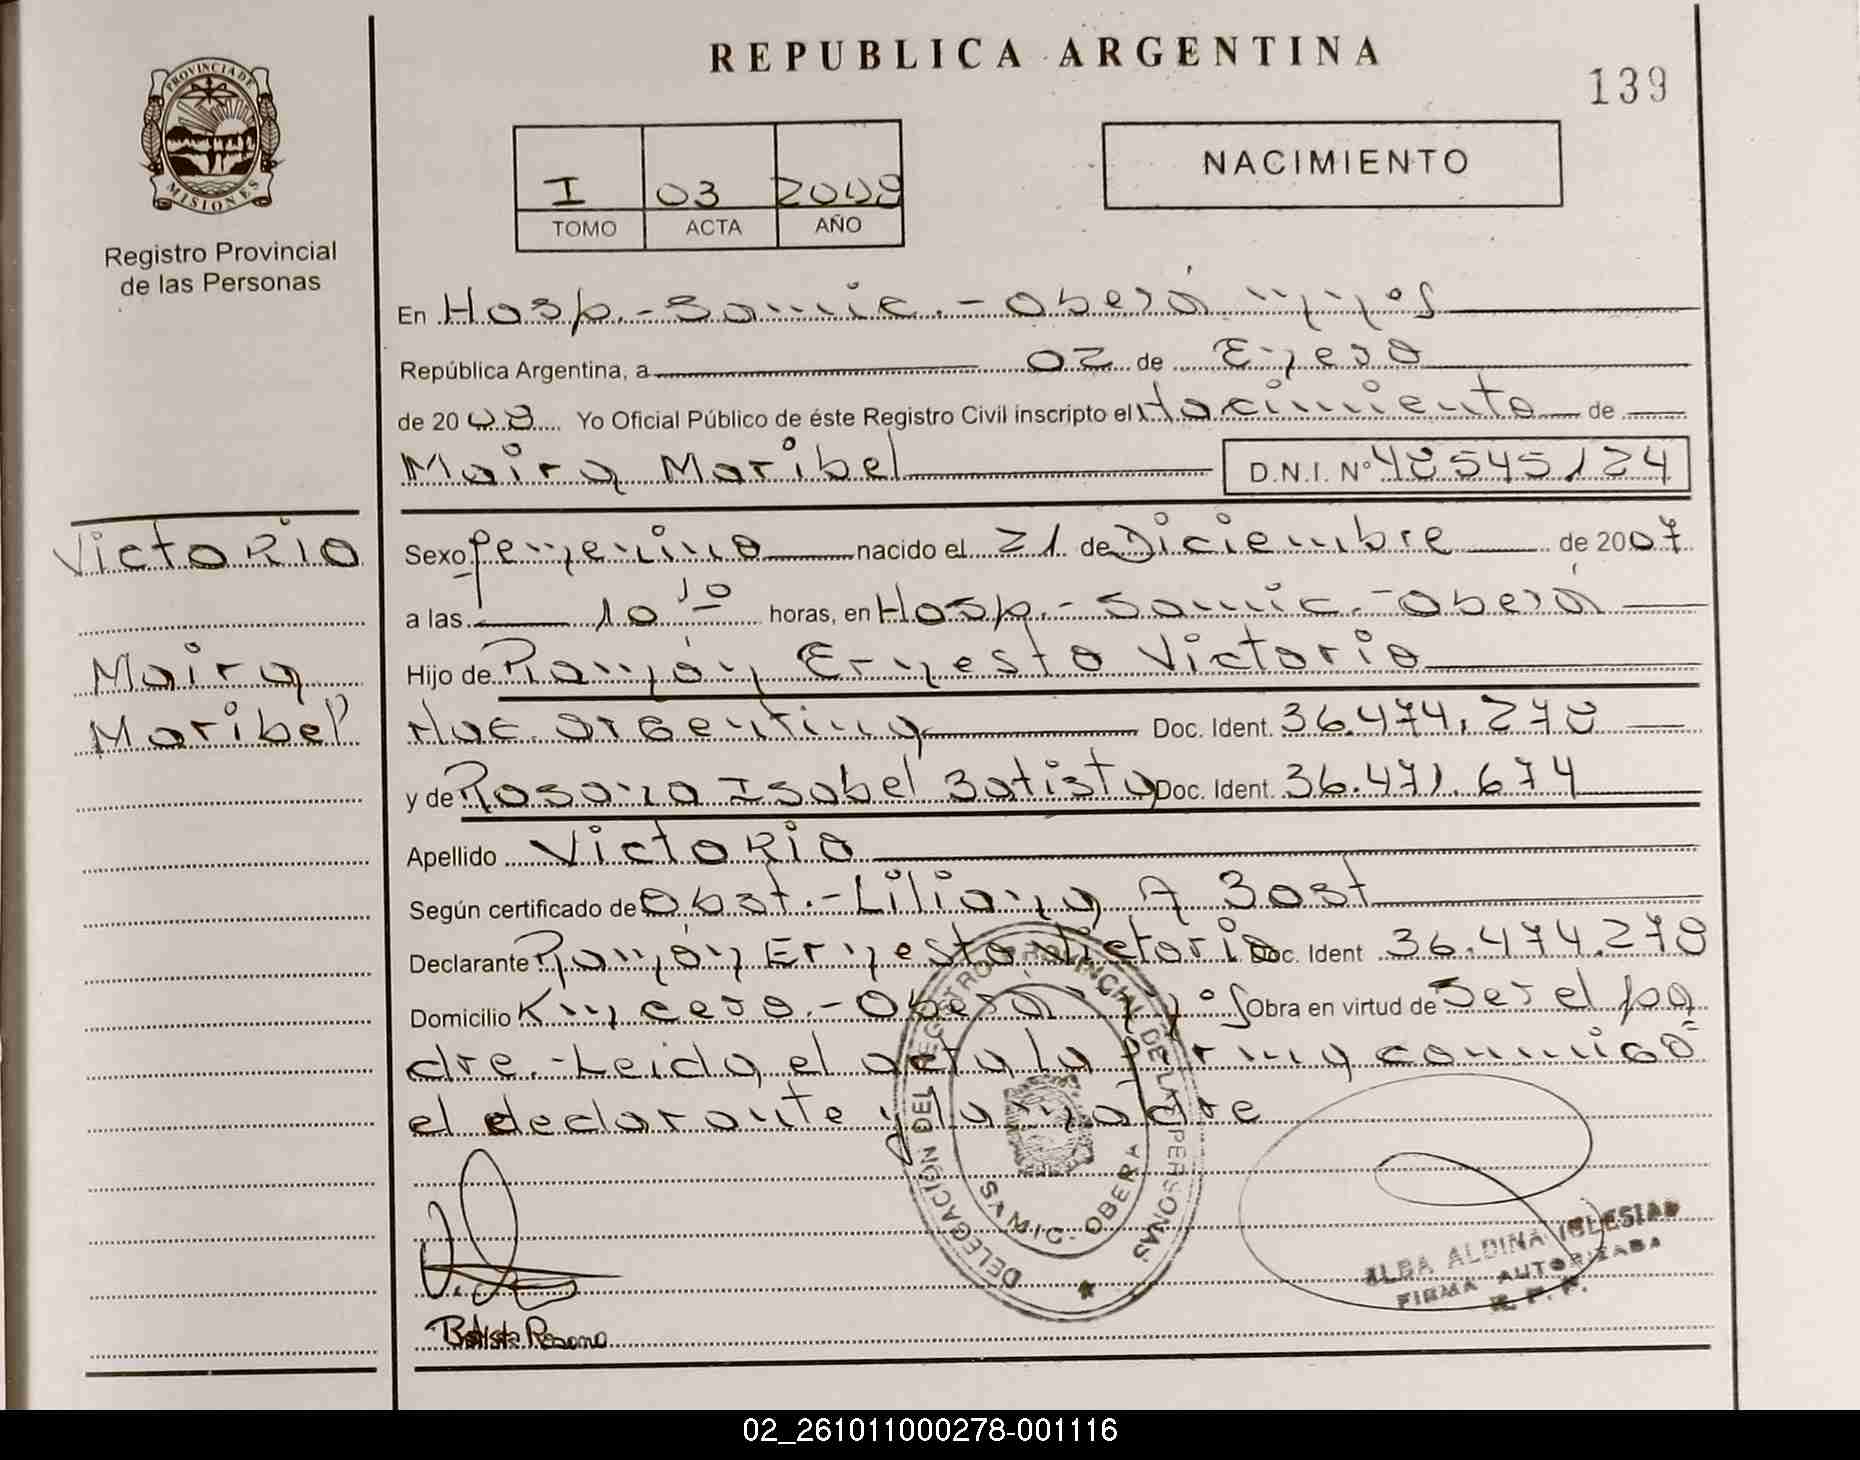 REPUBLICA ARGENTINA
139
PROVINCIA DE MISIONES
Registro Provincial
de las Personas
I 03 2008
TOMO ACTA AÑO
NACIMIENTO
En Hosp.- Samic.- Oberá Mnes
República Argentina, a 02 de Enero
de 2008 Yo Oficial Público de éste Registro Civil inscripto el Nacimiento de
Maira Maribel D.N.I. Nº 48545124
Victoria
Maira
Maribel
Sexo femenino nacido el 21 de Diciembre de 2007
a las 10 10 horas, en Hosp.- Samic.- Oberá
Hijo de Ramón Ernesto Victoria
Nac. argentina Doc. Ident. 36.474.278
y de Rosana Isabel Batista Doc. Ident. 36.471.674
Apellido Victoria
Según certificado de Obst.- Liliana A Bast
Declarante Ramón Ernesto Victoria Doc. Ident 36.474.278
Domicilio Oberá Obra en virtud de Ser el pa
dre.- Leida el acta la firma conmigo
el declarante y la madre
DELEGACIÓN DEL REGISTRO PROVINCIAL DE LAS PERSONAS
SAMIC - OBERA
Batista Rosana
ALBA ALDINA IGLESIAS
FIRMA AUTORIZADA
R. P. P.
02_261011000278-001116